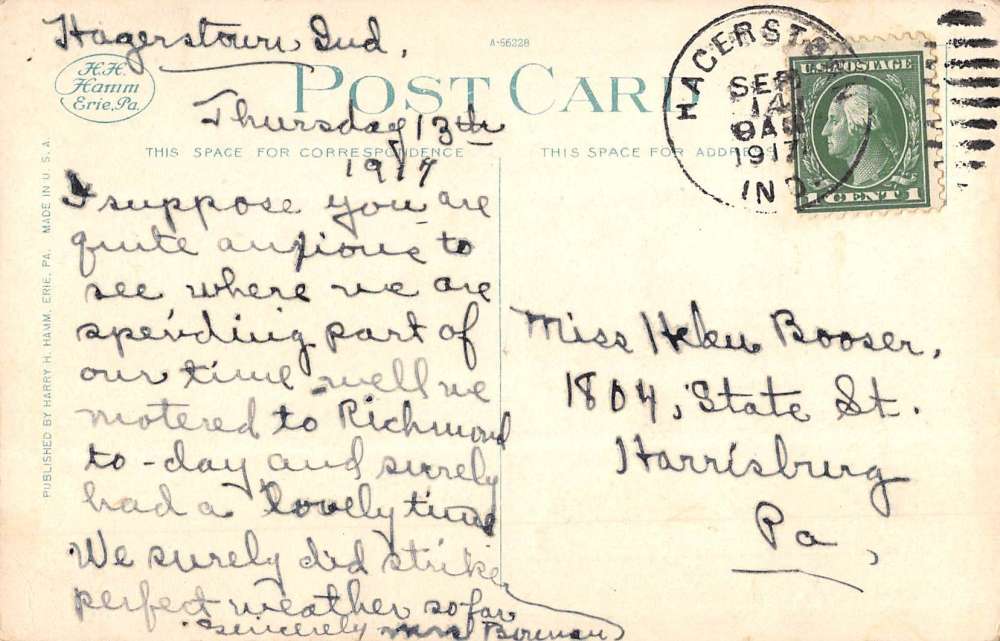 Hagerstown Ind.
A-56228
H.H.
Hamm
Erie, Pa.
POST CARD
Thursday 13th
THIS SPACE FOR CORRESPONDENCE
THIS SPACE FOR ADDRESS
1917
I suppose you are
quite anxious to
see where we are
spending part of
our time - well we
motored to Richmond
to-day, and surely
had a lovely time
We surely did strike
perfect weather so far
Sincerely Mrs
PUBLISHED BY HARRY H. HAMM, ERIE, PA. MADE IN U. S. A.
HAGERST
SEP
14
9 AM
1917
IND.
U.S. POSTAGE
1 CENT 1
Miss Helen Booser,
1804, State St.
Harrisburg
Pa,